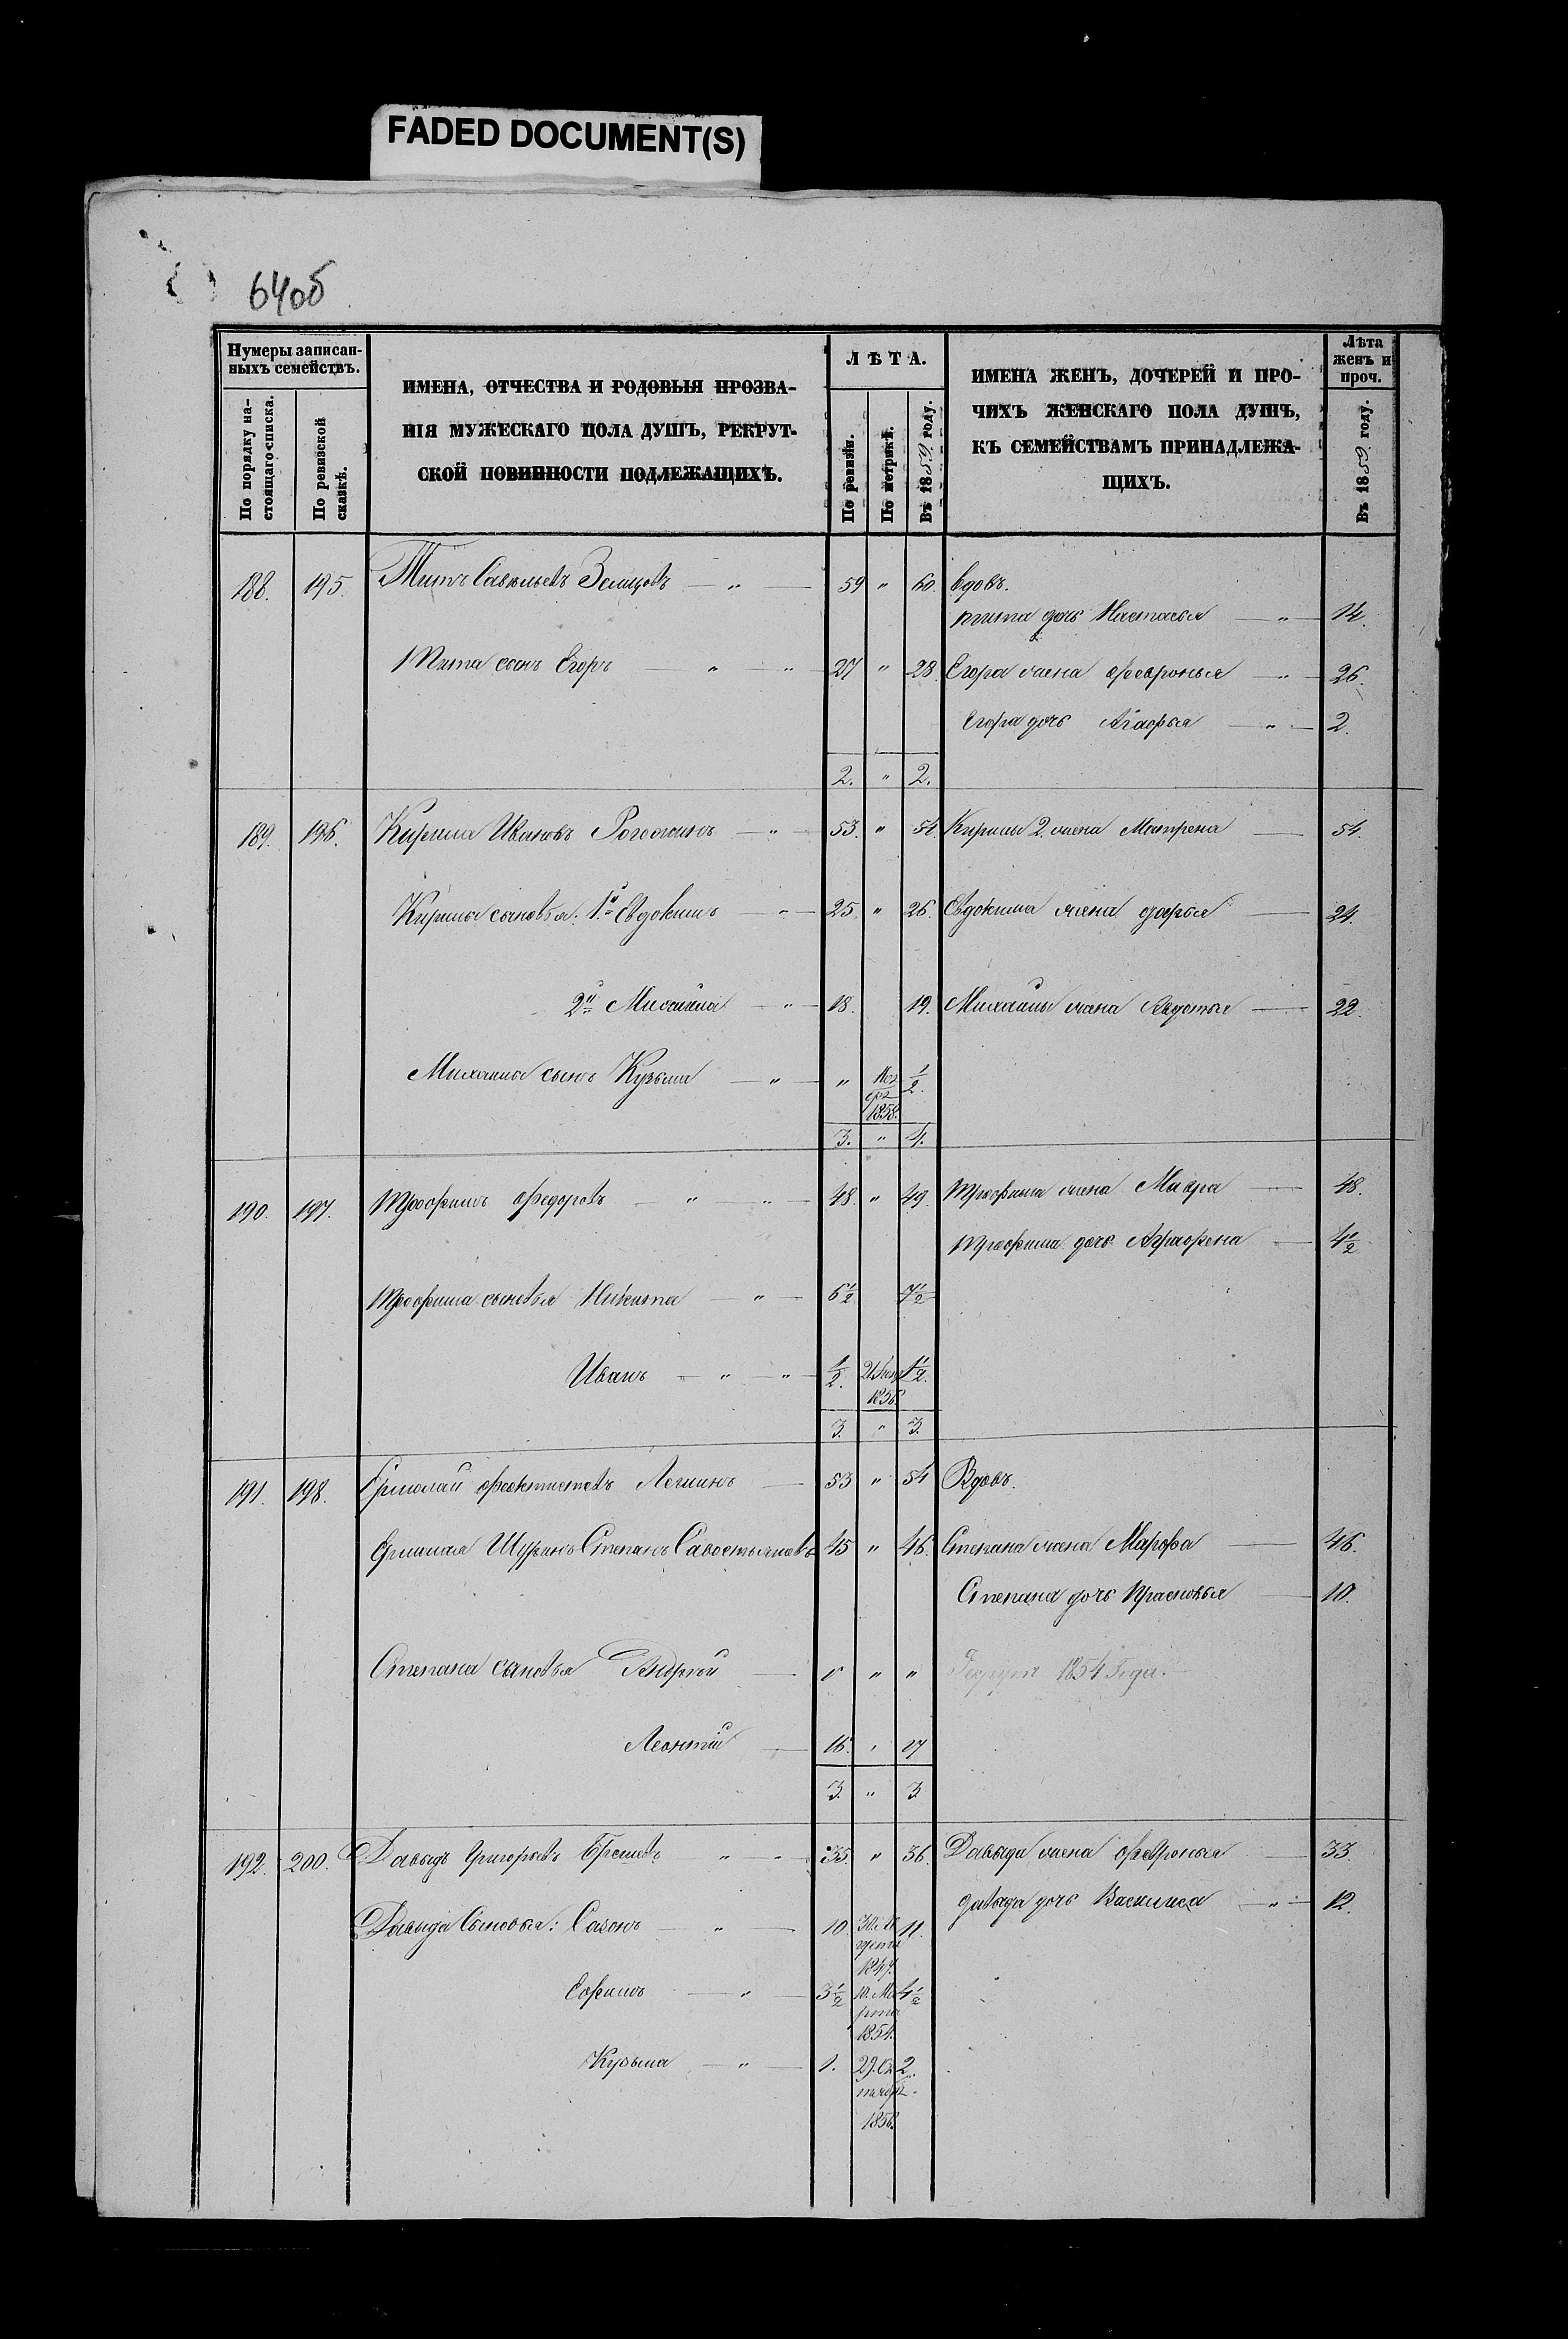 FADED DOCUMENT(S)
64об
Нумеры записан-
ныхъ семействъ.
По порядку на-
стоящаго списка.
По ревизской
сказкѣ.
ИМЕНА, ОТЧЕСТВА И РОДОВЫЯ ПРОЗВА-
НІЯ МУЖЕСКАГО ПОЛА ДУШЪ, РЕКРУТ-
СКОЙ ПОВИННОСТИ ПОДЛЕЖАЩИХЪ.
ЛѢТА.
По ревизіи.
По метрикѣ.
Въ 1859 году.
ИМЕНА ЖЕНЪ, ДОЧЕРЕЙ И ПРО-
ЧИХЪ ЖЕНСКАГО ПОЛА ДУШЪ,
КЪ СЕМЕЙСТВАМЪ ПРИНАДЛЕЖА-
ЩИХЪ.
Лѣта
женъ и
проч.
Въ 1859 году.
188. 195. Титъ Савельевъ — " — 59 " 60. вдовъ.
тита дочь Настасья — " — 14.
Тита сынъ Егоръ — " — " — 27 " 28. Егора жена Февронья — " — 26.
Егора дочь Агафья — " — 2.
2. " 2.
189. 196. Кирила Ивановъ Рогожинъ — " — 53. " 54. Кирилы 2. жена Матрена — 54.
Кирилы сыновья. 1й Евдокимъ — " — 25. " 26. Евдокима жена дарья — 24.
2й Михайла — " — 18. 19. Михайлы жена Авдотья — 22.
Михайлы сынъ Кузьма — " — " 1858. 1/2.
3. " 4.
190. 197. Трофимъ Федоровъ — " — " — 48. " 49. Трофима жена Мавра — 48.
Трофима дочь Аграфена — 4 1/2
Трофима сыновья Никита — " — 6 1/2 7 1/2
Иванъ — " — " — 1/2. 1856. 1 1/2.
3. " 3.
191. 198. Ермолай Феоктистовъ — 53 " 54 Вдовъ.
Ермолая Шуринъ Степанъ Савостьяновъ 45 " 46. Степана жена Марфа — 46.
Степана дочь Прасковья — 10.
Степана сыновья Андрей — " " " 1854 Года.
Леонтій — 16. " 17
3. " 3.
192. 200. Давыдъ Григорьевъ — " — 35. " 36. Давыда жена Февронья — 33.
давыда дочь Василиса — " — 12.
Давыда Сыновья: Сазонъ — " — 10. 1847. 11.
Ефимъ — " — 3 1/2 10. Ма 4 1/2
рта
1854.
Кузьма — " — 1. 29. Ок 2.
тября
1856.